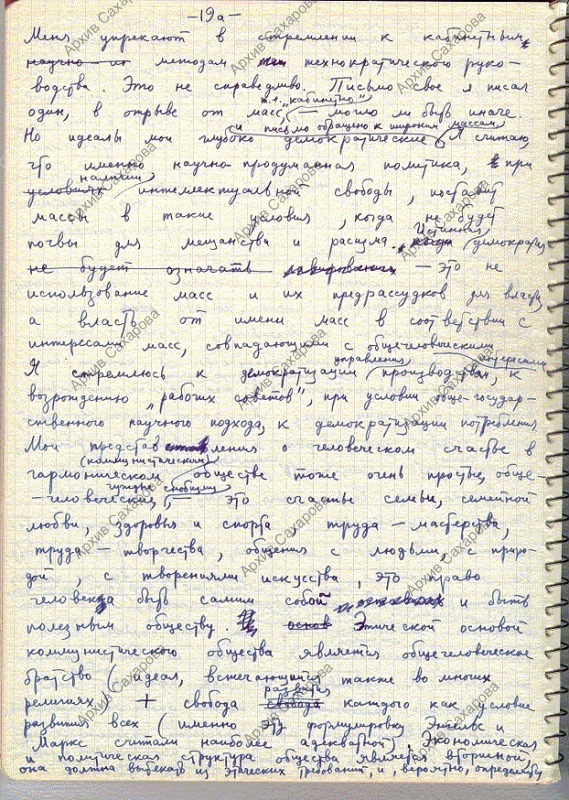 -19а-
Меня упрекают в стремлении к кабинетным
научно- методам технократического руко-
водства. Это не справедливо. Письмо свое я писал
один, в отрыве от масс, т.е. „кабинетно“ — могло ли быть иначе.
Но идеалы мои глубоко демократические и письмо обращено к широким массам. Я считаю,
что именно научно-продуманная политика, при
условиях наличии интеллектуальной свободы, поставит
массы в такие условия, когда не будет
почвы для мещанства и расизма. Истинная демократия
не будет означать лавирования — это не
использование масс и их предрассудков для власти,
а власть от имени масс в соответствии с
интересами масс, совпадающими с общечеловеческими интересами
Я стремлюсь к демократизации управления производства, к
возрождению „рабочих советов“, при условии обще-государ-
ственного научного подхода, к демократизации потребления
Мои представления о человеческом счастье в
гармоническом (коммунистическом) обществе тоже очень простые, обще-
-человеческие, чуждые снобизму — это счастье семьи, семейной
любви, здоровья и спорта, труда — мастерства,
труда — творчества, общения с людьми, с приро-
дой, с творениями искусства, это право
человека быть самим собой и быть
полезным обществу. основ Этической основой
коммунистического общества является общечеловеческое
братство (идеал, встечающийся также во многих
религиях) + свобода свобода развития каждого как условие
развития всех (именно эту формулировку Энгельс и
Маркс считали наиболее адекватной). Экономическая
и политическая структура общества является вторичной,
она должна вытекать из этических требований, и, вероятно, определяться
Архив Сахарова